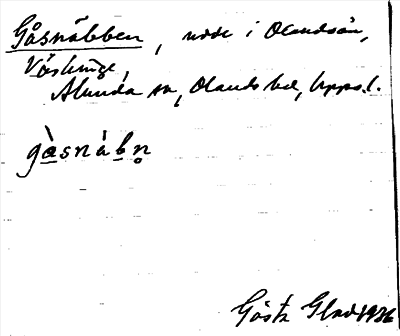 Gåsnäbben, udde i Olandsån,
Väskinge,
Alunda sn, Olands hd, Upps. l.
gàsnábn̥
Gösta Glad 1936